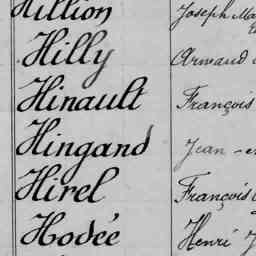 Hillion Joseph Ma
Hilly Armand
Hinault François
Hingand Jean
Hirel François
Hodée Henri J